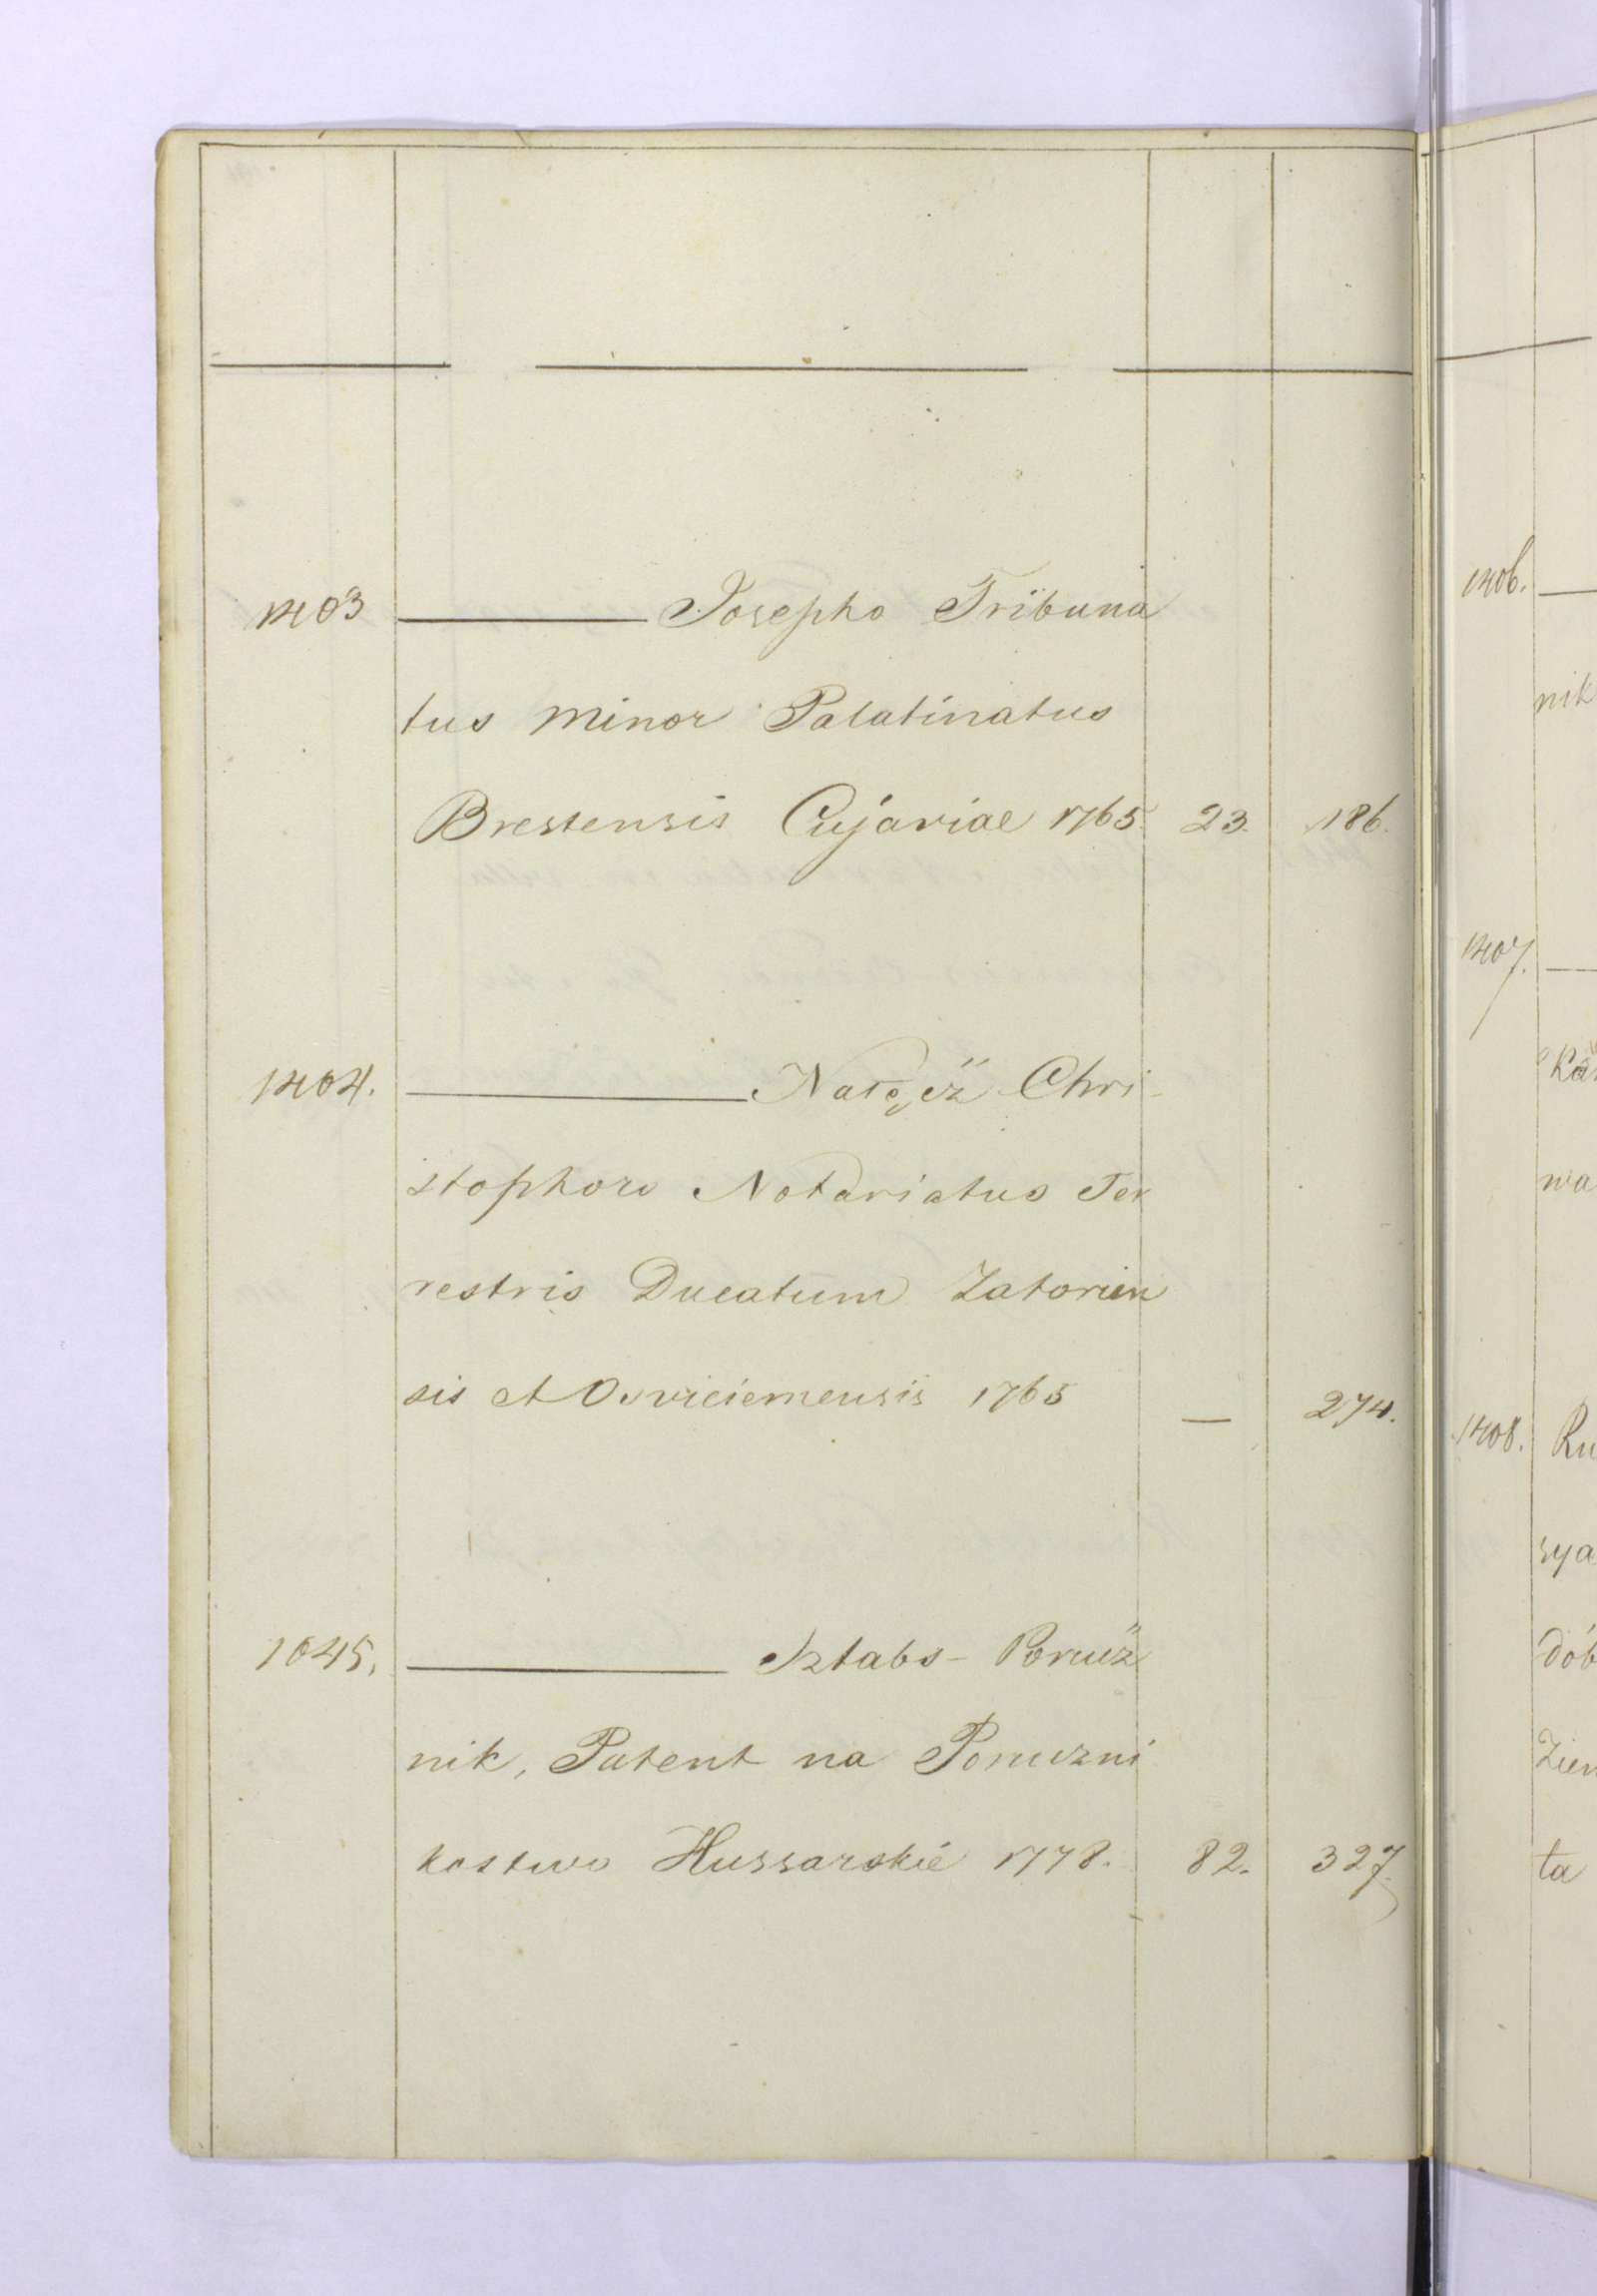 1403 ——— Josepho Tribuna
tus Minor Palatinatus
Brestensis Cujaviae 1765. 23. 186.
1404. ——— Nałęcz Chri-
stophoro Notariatus Ter
restris Ducatum Zatorien
sis et Osvieciemensis 1765 — 274.
1045. ——— Sztabs-Porucz
nik, Patent na Poruczni
kostwo Hussarskie 1778. 82. 327.
1406. —
nik
1407. —
wa
1408. Ru
sya
dób
Zien
ta